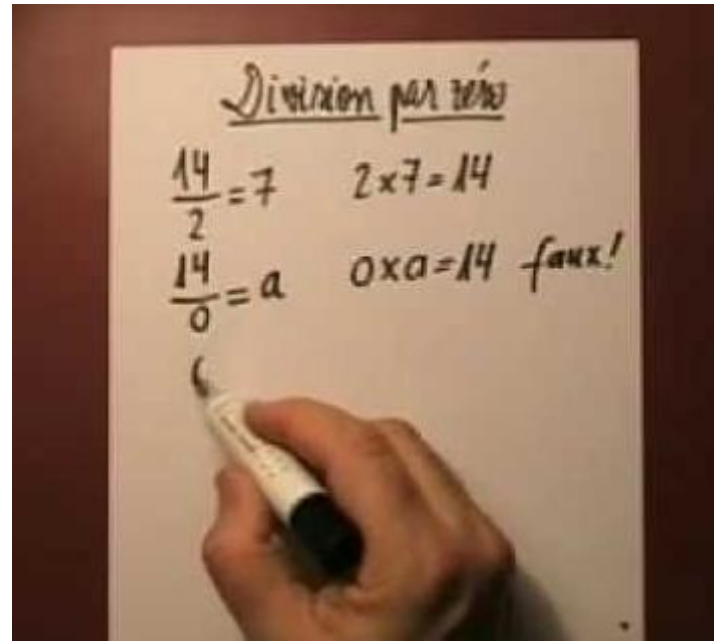 Division par zéro
14/2 = 7 2x7=14
14/0 = a 0xa=14 faux!